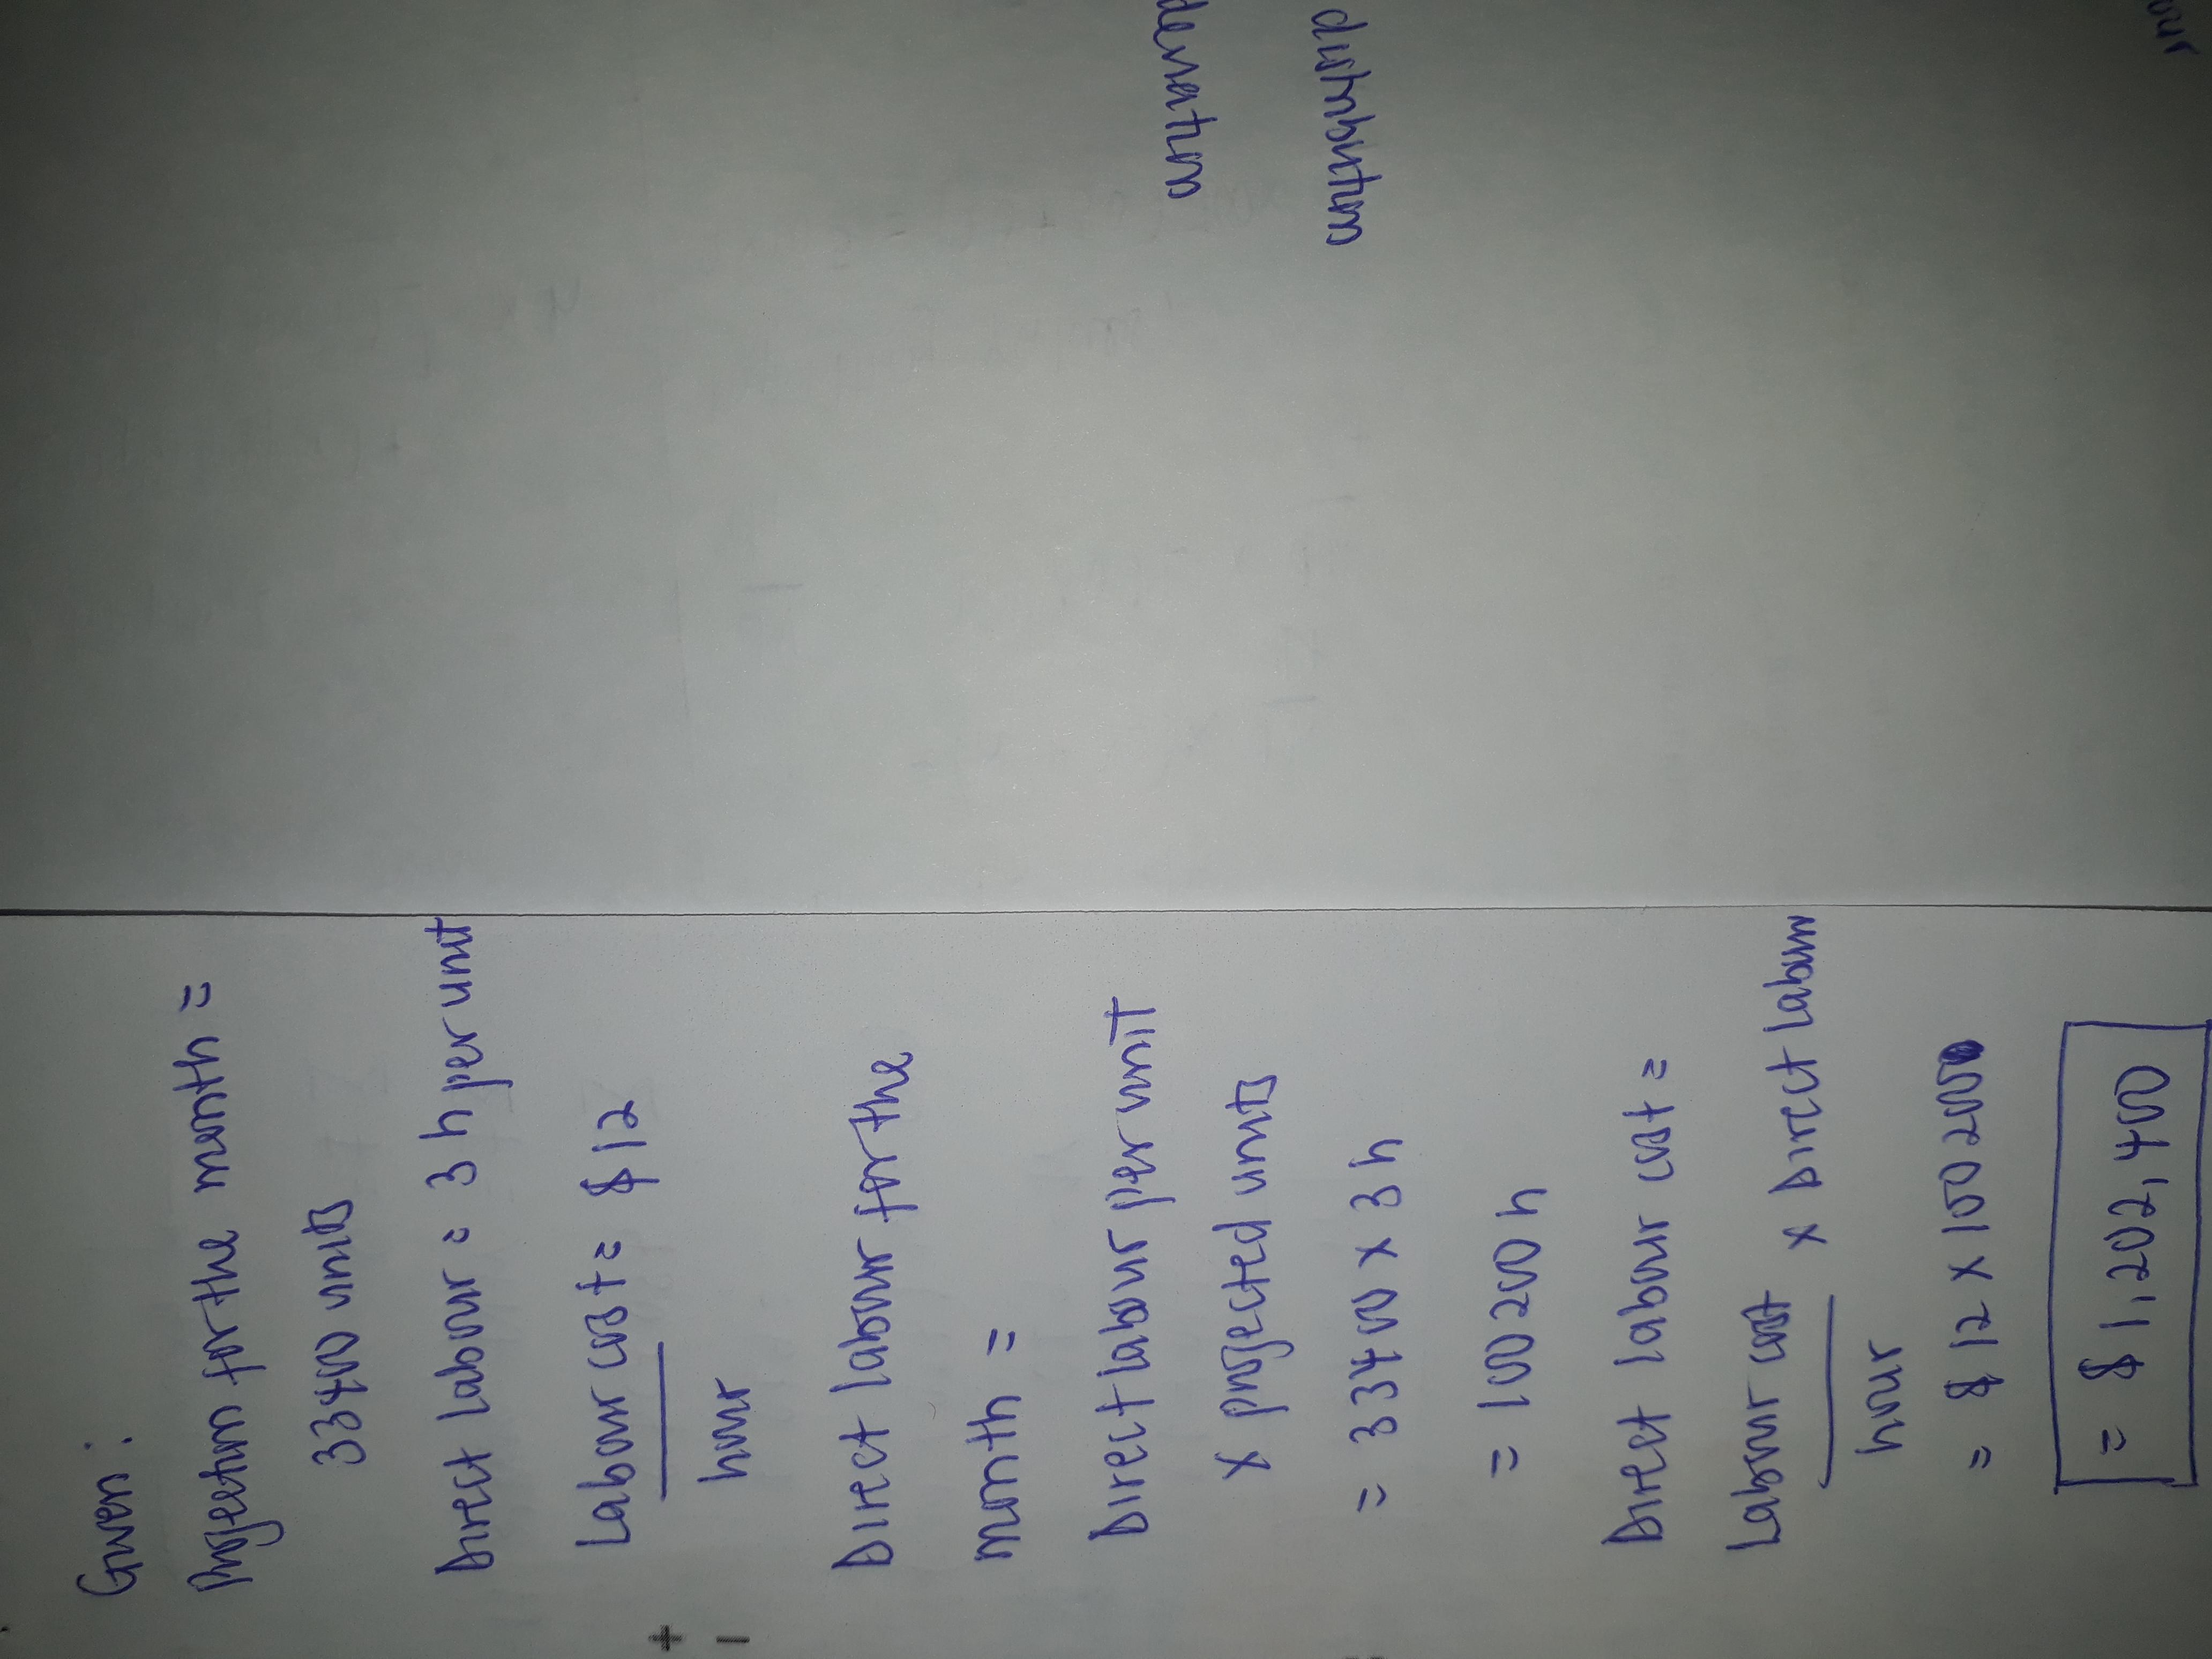 Given:
Projection for the month =
33400 units
Direct labour = 3 h per unit
Labour cost = $ 12
hour
Direct labour for the
month =
Direct labour per unit
x projected units
= 33400 x 3 h
= 100200 h
Direct labour cost =
Labour cost x Direct labour
hour
= $ 12 x 100200
= $ 1,202,400
+
-
distribution